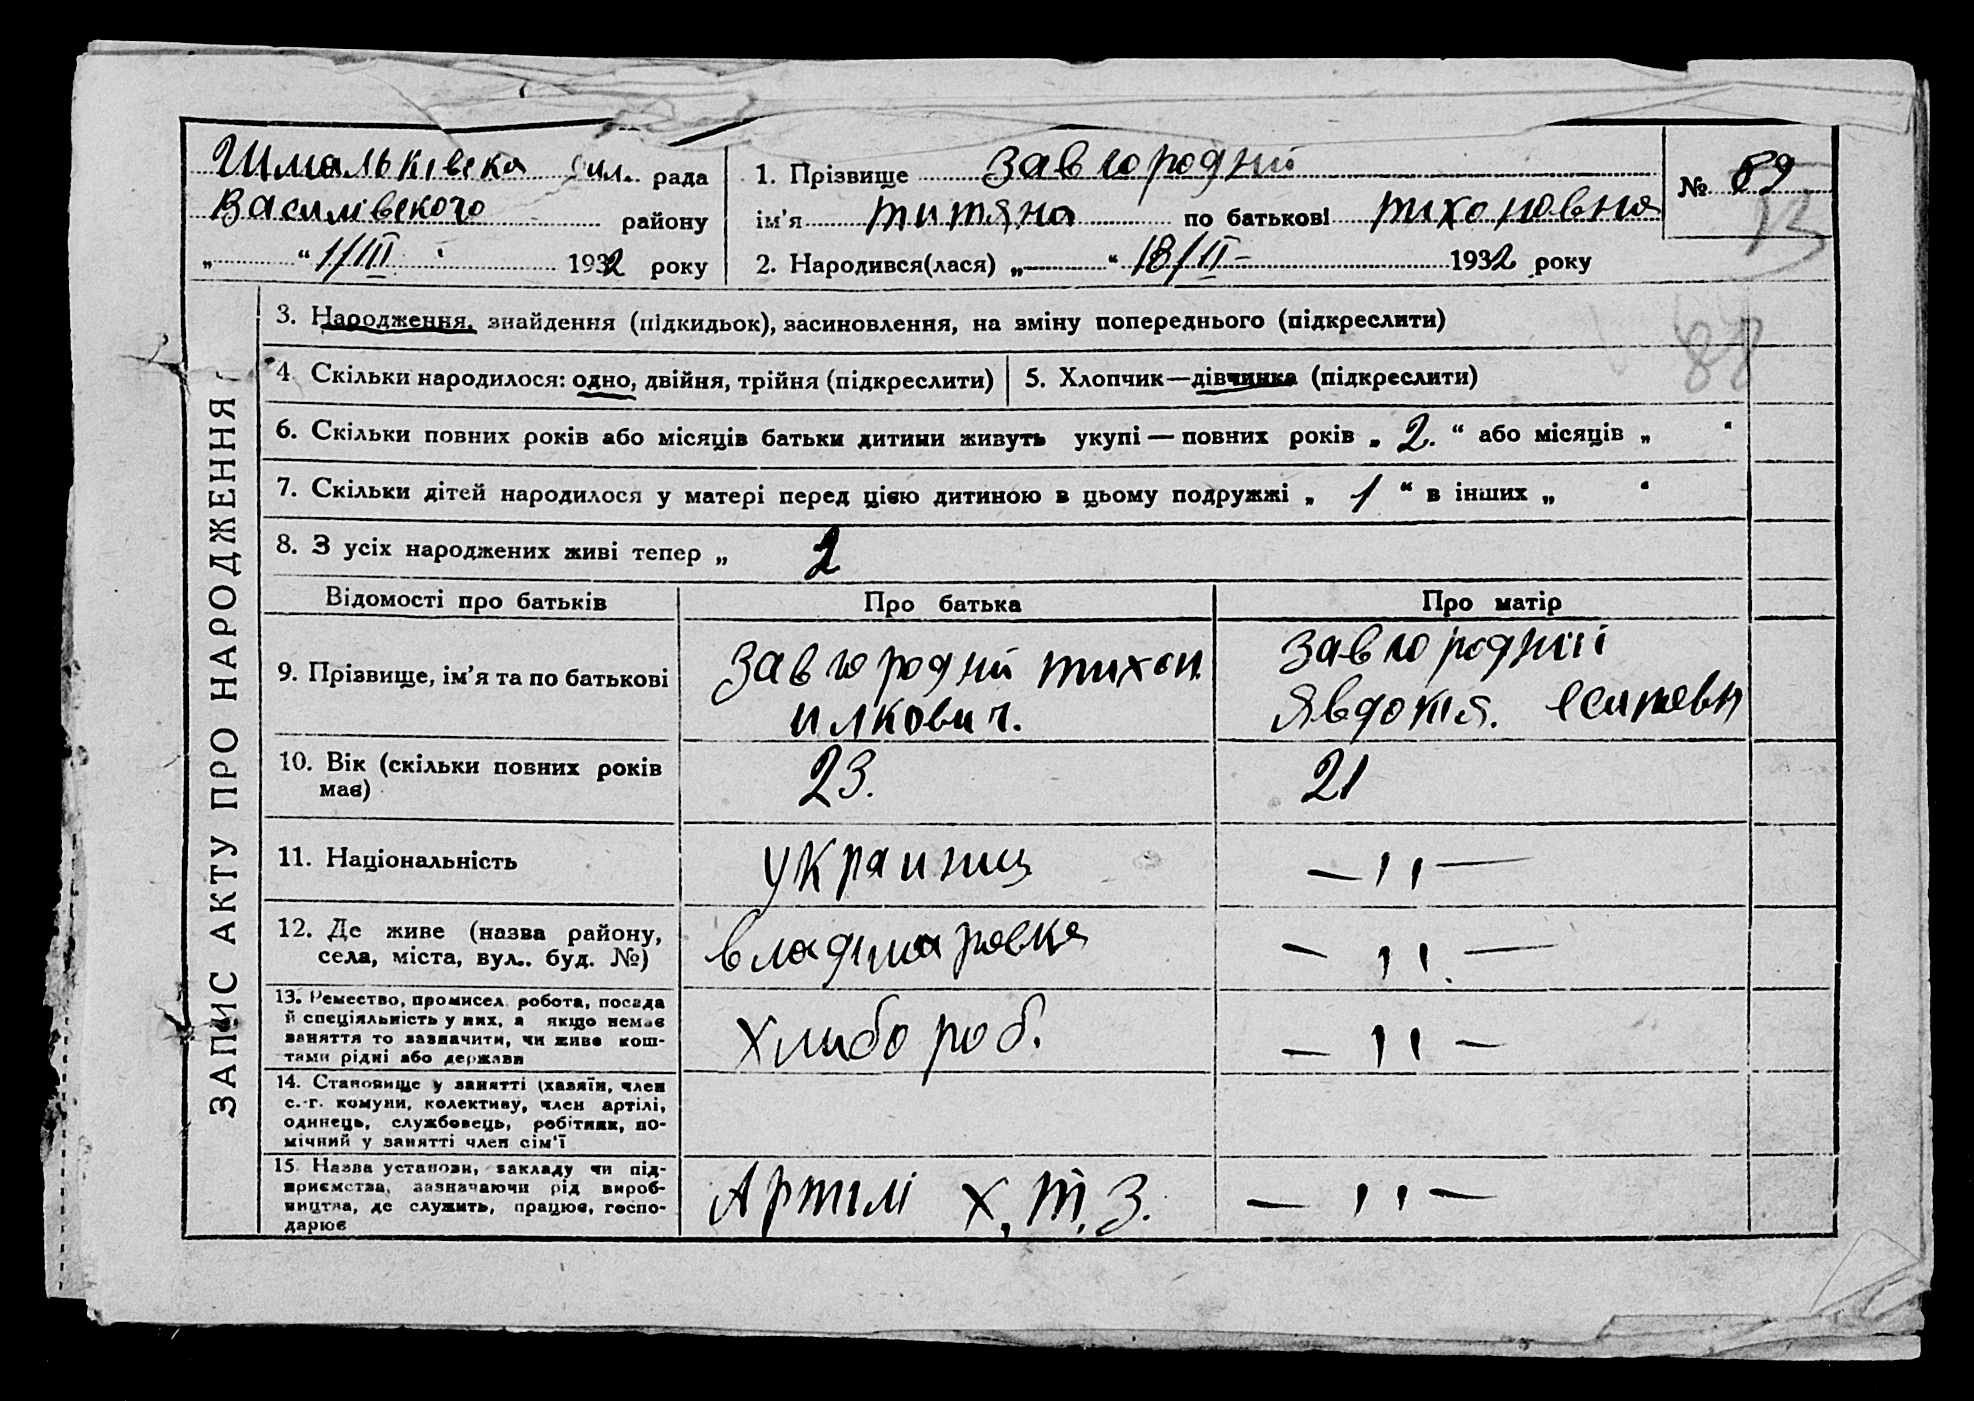 Шмальківска сил. рада
Василівского району
„ “ 1/III 1932 року
1. Прізвище Завгородний
ім'я Титяна по батькові Тихоновна
2. Народився(лася) „ “ 18/II – 1932 року
№ 89
88
ЗАПИС АКТУ ПРО НАРОДЖЕННЯ
3. Народження, знайдення (підкидьок), засиновлення, на зміну попереднього (підкреслити)
4. Скільки народилося: одно, двійня, трійня (підкреслити) 5. Хлопчик—дівчинка (підкреслити)
6. Скільки повних років або місяців батьки дитини живуть укупі — повних років „ 2. “ або місяців „ “
7. Скільки дітей народилося у матері перед цією дитиною в цьому подружжі „ 1 “ в інших „ “
8. З усіх народжених живі тепер „ 2
Відомості про батьків Про батька Про матір
9. Прізвище, ім'я та по батькові
Завгородний Тихон
Илкович.
Завгородний
Явдокія.
10. Вік (скільки повних років
має)
23.
21
11. Національність украинц — ,, —
12. Де живе (назва району,
села, міста, вул.. буд. №)
владимаровка
— ,, —
13. Ремество, промисел, робота, посада
й спеціяльність у них, а якщо немає
заняття то зазначити, чи живе кош-
тами рідні або держави
хлибороб.
— ,, —
14. Становище у занятті (хазяїн, член
с.-г. комуни, колективу, член артілі,
одинець, службовець, робітник, по-
мічний у занятті член сім'ї
15. Назва установи, закладу чи під-
приємства, зазначаючи рід вироб-
ництва, де служить, працює, госпо-
дарює
Артілі Х.Т.З.
— ,, —